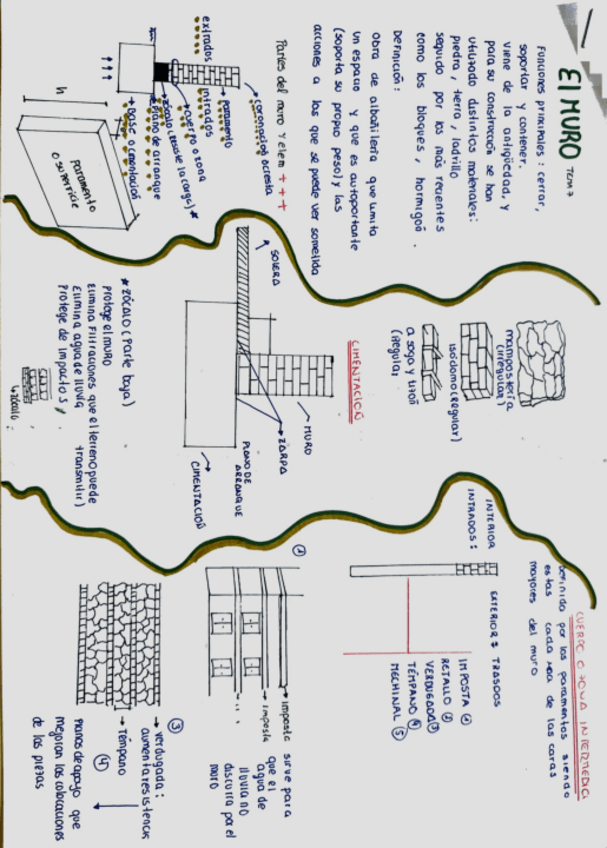 El MURO TEMA 7
Funciones principales: cerrar,
soportar y contener.
viene de la antigüedad, y
para su construcción se han
utilizado distintos materiales:
piedra, tierra, ladrillo
seguido por los más recientes
como los bloques, hormigón.
Definición:
Obra de albañilería que limita
un espacio y que es autoportante
(soporta su propio peso) y las
acciones a las que se puede ver sometida
Partes del muro y elem +++
coronación o cresta
paramento
extrados
intrados
cuerpo o zona
zócalo (resiste la carga) *
Plano de arranque
base o cimentación
h
paramento
o superficie
mampostería
(irregular)
isódomo (regular)
a soga y tizón
(regular)
CIMENTACIÓN
SOLERA
MURO
ZARPA
PLANO DE
ARRANQUE
CIMENTACIÓN
* zócalo (parte baja)
protege el muro
Elimina Filtraciones que el terreno puede
transmitir)
Elimina agua de lluvia
Protege de impactos
zócalo
CUERPO O ZONA INTERMEDIA
Definido por los paramentos siendo
estas cada una de las caras
mayores del muro
INTERIOR
INTRADOS:
EXTERIOR: TRASDOS
IMPOSTA ①
RETALLO ②
VERDUGADA ③
TÉMPANO ④
MECHINAL ⑤
①
imposta
imposta
sirve para
que el
agua de
lluvia no
discurra por el
muro
③
verdugada:
aumenta resistencias
témpano
④
Planos de apoyo que
mejoran las colocaciones
de las piezas